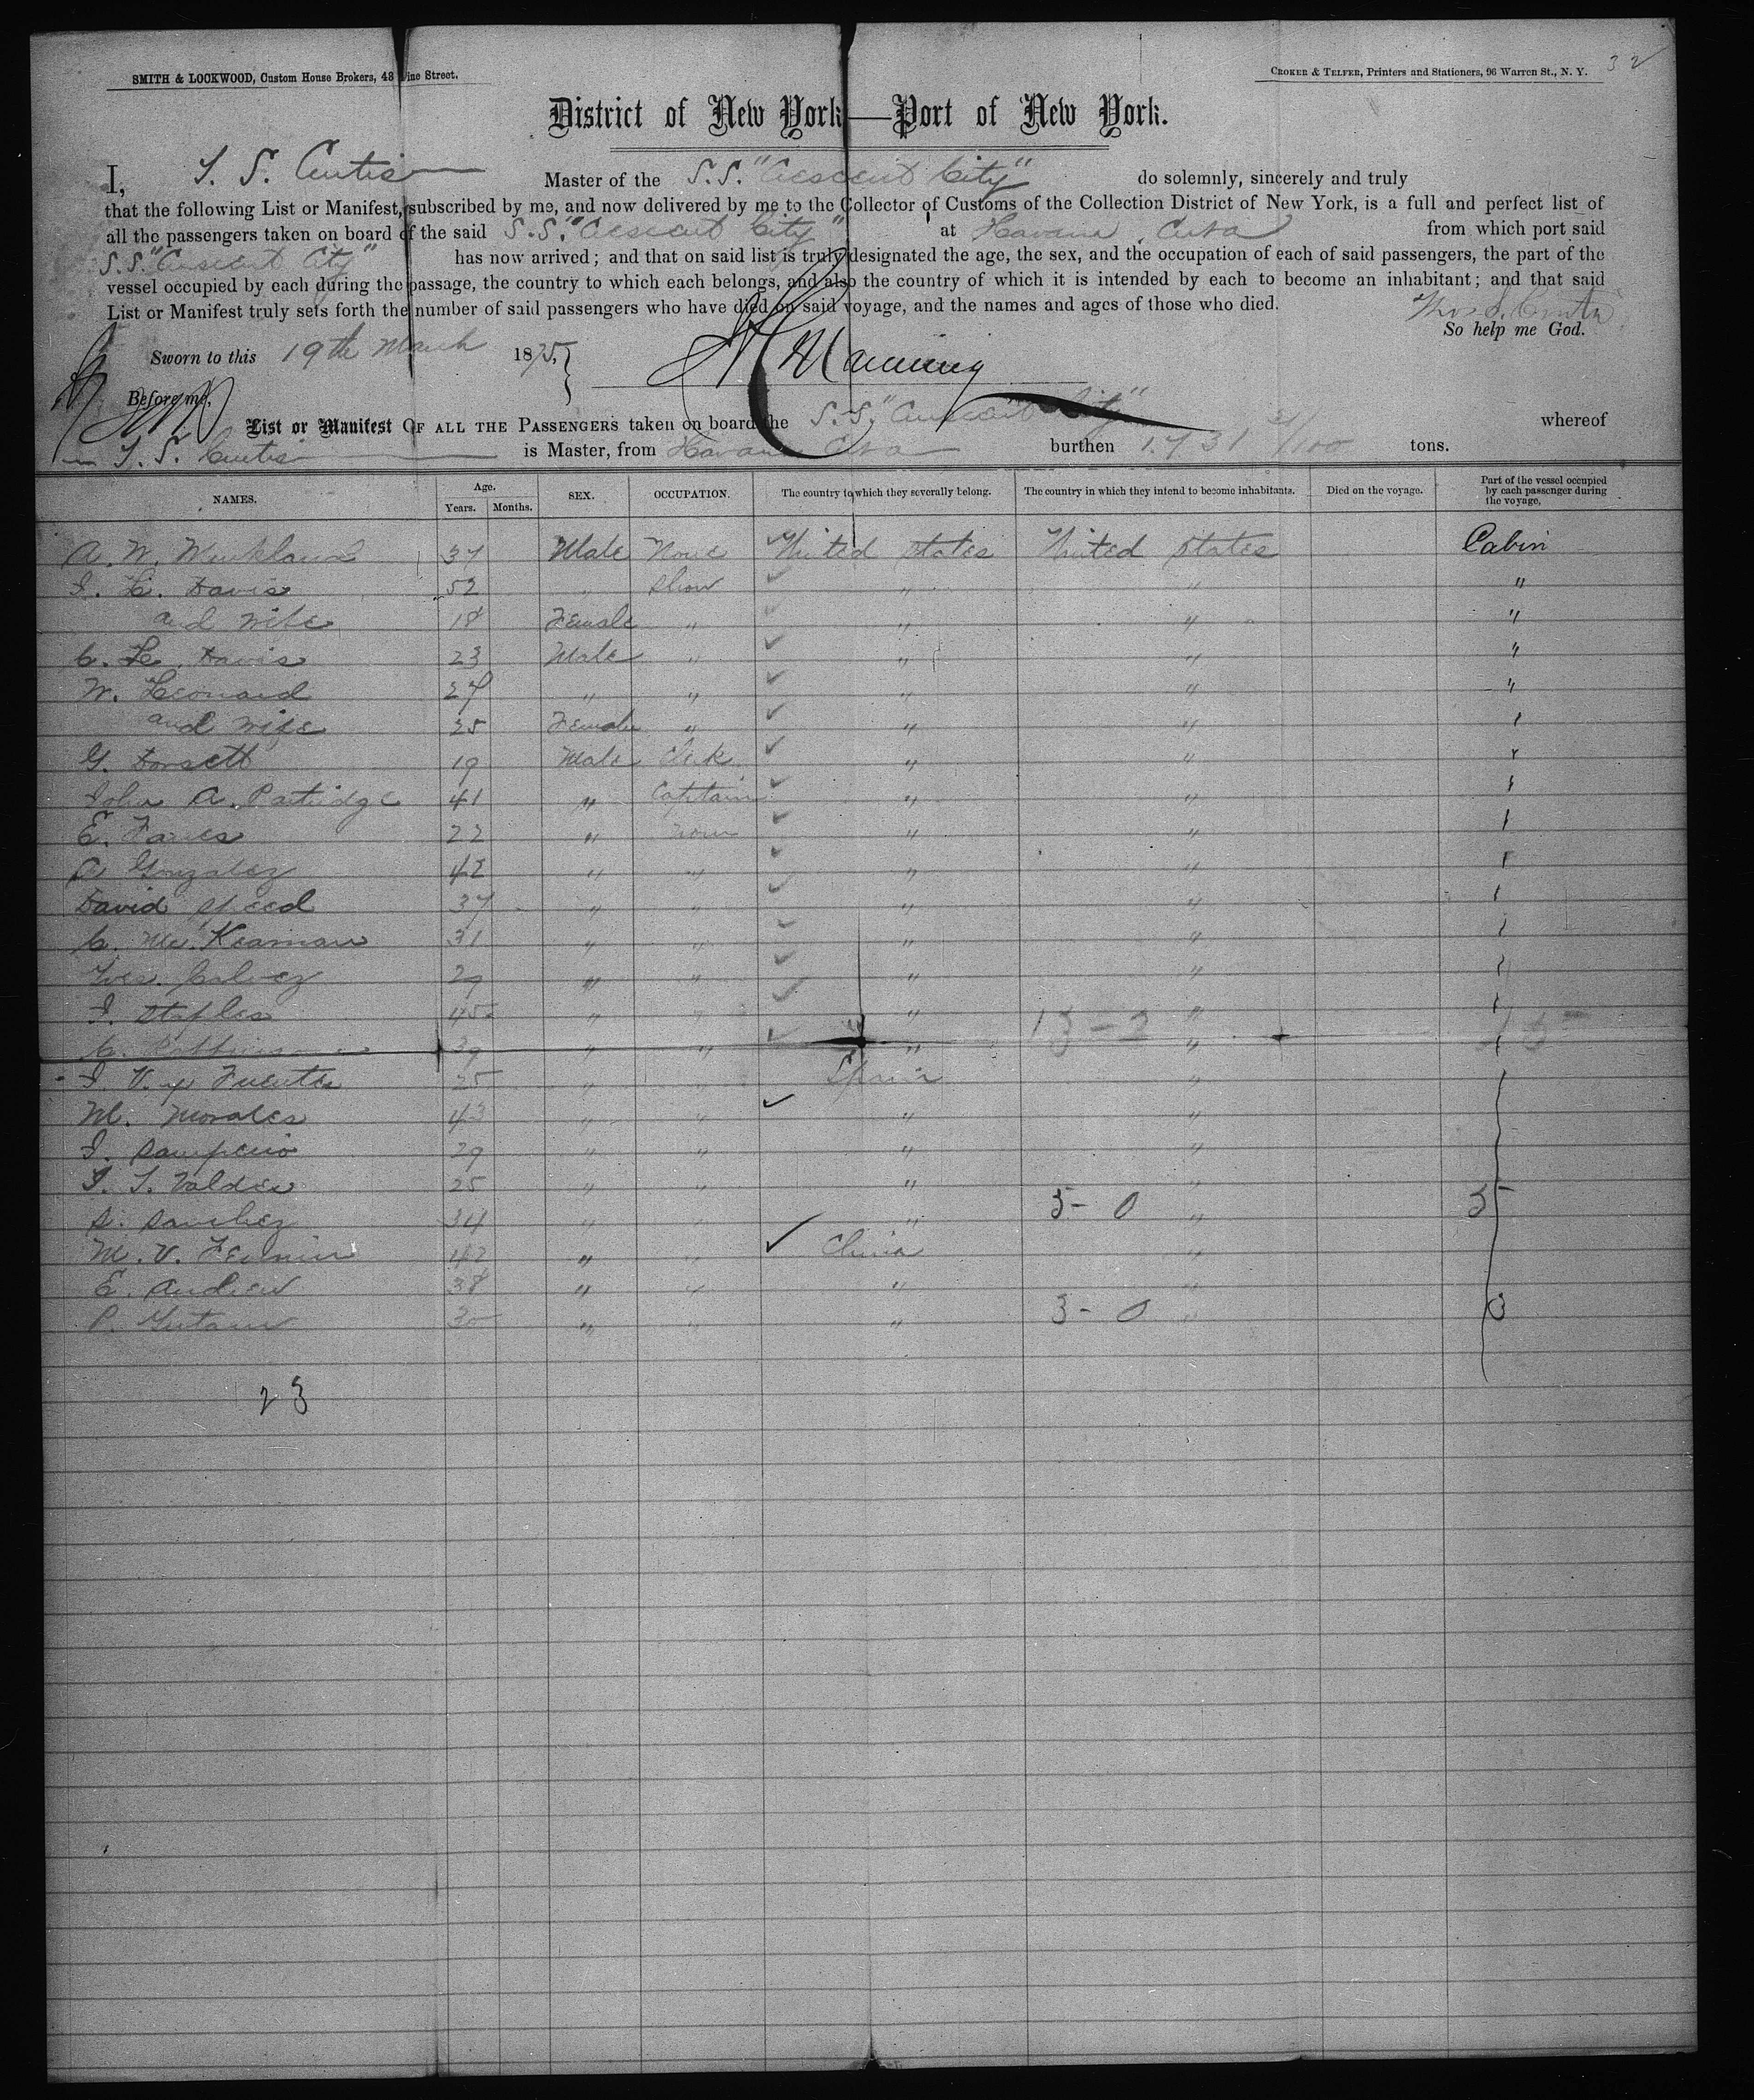 SMITH & LOCKWOOD, Custom House Brokers, 48 Pine Street.
CROKER & TELFER, Printers and Stationers, 96 Warren St., N. Y. 32
District of New York—Port of New York.
I, T. S. Curtis Master of the S.S. "Crescent City" do solemnly, sincerely and truly
that the following List or Manifest, subscribed by me, and now delivered by me to the Collector of Customs of the Collection District of New York, is a full and perfect list of
all the passengers taken on board of the said S.S. "Crescent City" at Havana, Cuba from which port said
S.S. "Crescent City" has now arrived; and that on said list is truly designated the age, the sex, and the occupation of each of said passengers, the part of the
vessel occupied by each during the passage, the country to which each belongs, and also the country of which it is intended by each to become an inhabitant; and that said
List or Manifest truly sets forth the number of said passengers who have died on said voyage, and the names and ages of those who died.
Thos S. Curtis
So help me God.
Sworn to this 19th March 1875,
Manning
Before me,
List or Manifest OF ALL THE PASSENGERS taken on board the S.S. "Crescent City" whereof
T. S. Curtis is Master, from Havana Cuba burthen tons.
NAMES. Age. Years. Months. SEX. OCCUPATION. The country to which they severally belong. The country in which they intend to become inhabitants. Died on the voyage. Part of the vessel occupied by each passenger during the voyage.
A. W. 37 Male None United States United States Cabin
Davis 52 " Show " " "
and wife 18 Female " " " "
Davis 23 Male " " " "
W. Leonard 27 " " " " "
and wife 25 Female " " "
G. Dorsett 19 Male Clerk " "
John A. Partridge 41 " Captain " "
E. 22 " None " "
A Gonzalez 42 " " " "
David Speed 37 " " " "
C. Mc. Kearnan 31 " " " "
29 " " " "
Staples 45 " " " "
39 " " " "
V. y Fuentes 25 " " Spain "
M. Morales 43 " " " "
29 " " " "
Valdes 25 " " " "
S. Sanchez 34 " " " 5-0 " 5
M. V. Fermin 42 " " China "
E. Andrew 38 " " " "
P. 30 " " " 3-0 " 3
23